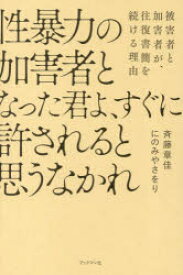 被害者と
加害者が、
往復書簡を
続ける理由
性暴力の
加害者と
なった君よ、すぐに
許されると
思うなかれ
斉藤章佳
にのみやさをり
ブックマン社